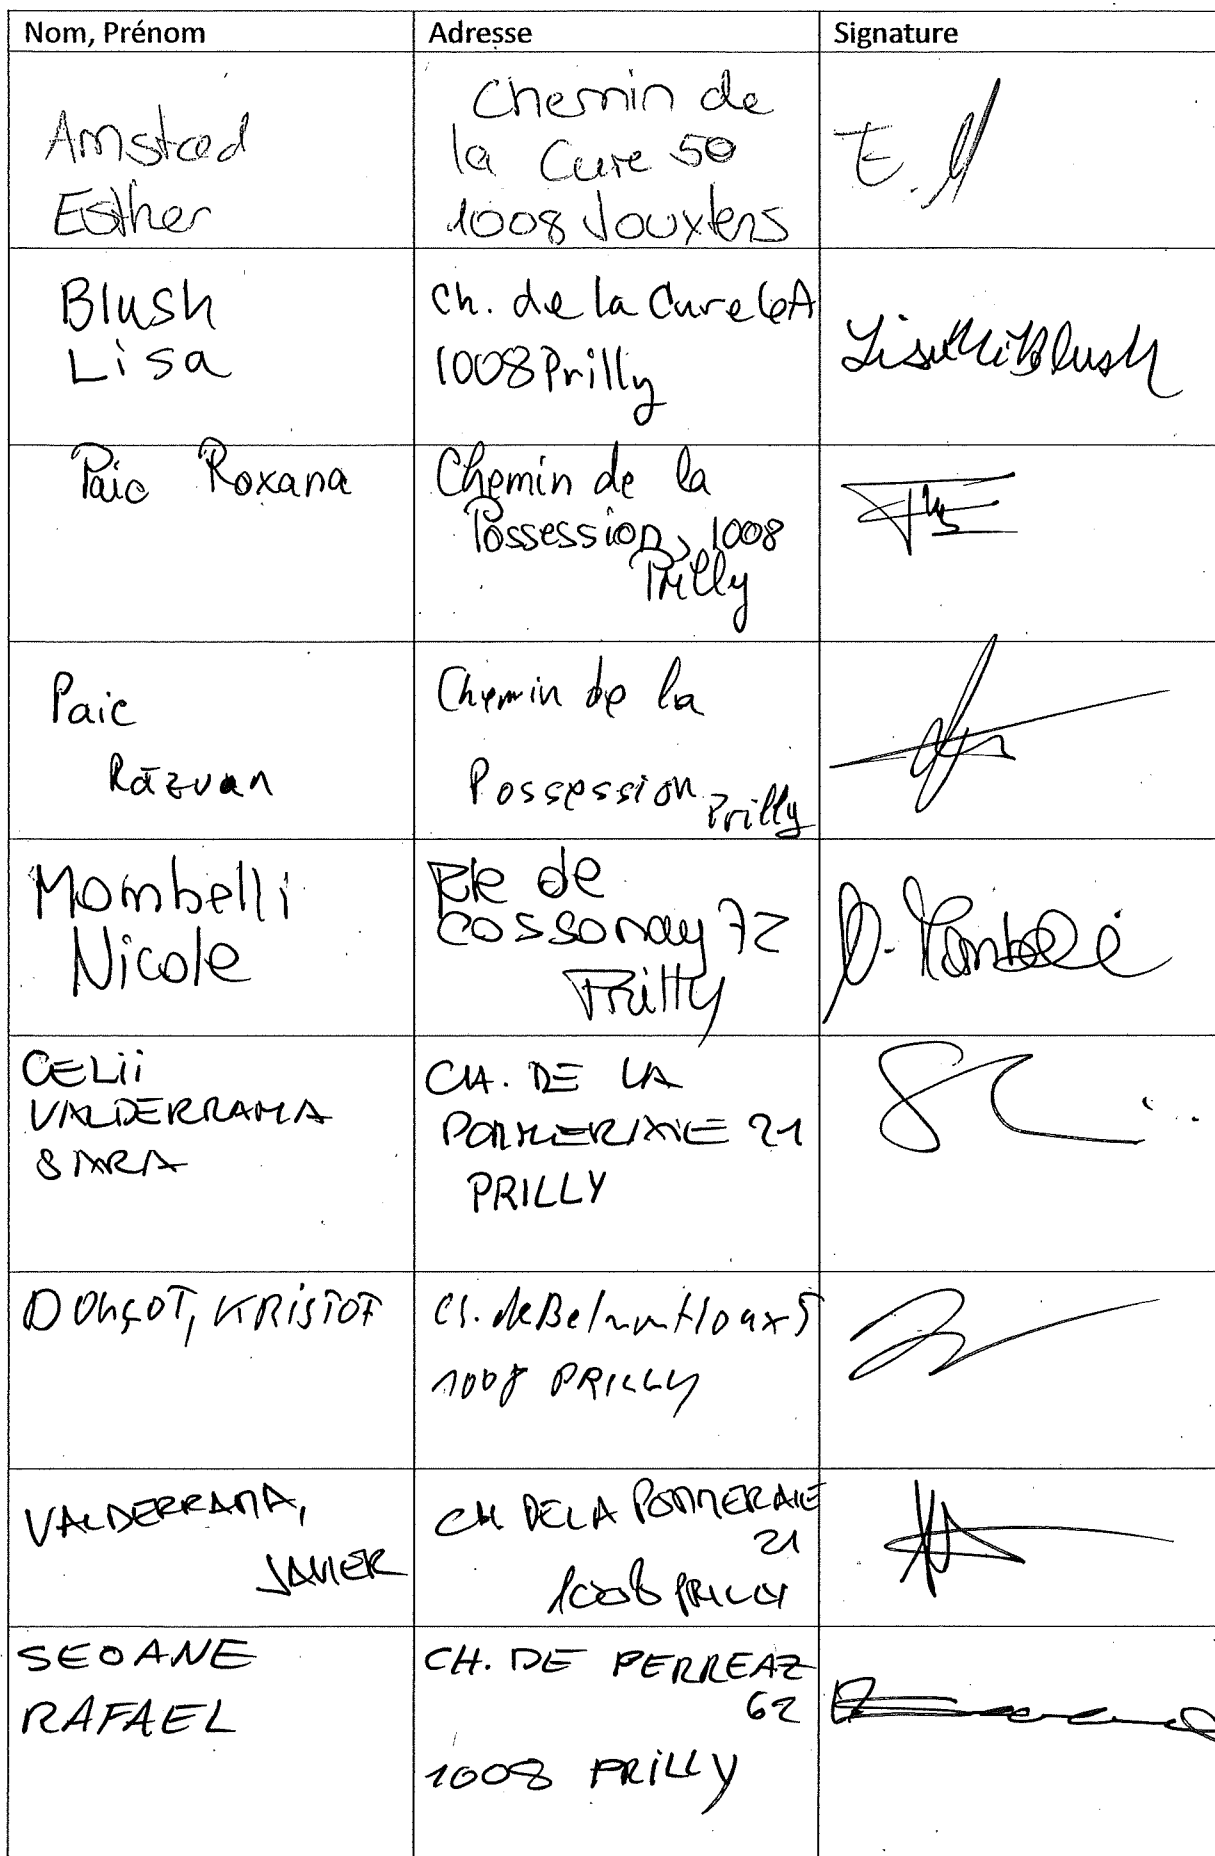 Nom, Prénom Adresse Signature
Amstad
Esther
Chemin de
la Cure 50
1008 Jouxtens
E. A
Blush
Lisa
Ch. de la Cure 6A
1008 Prilly
Blush
Paic Roxana
Chemin de la
Possession, 1008
Prilly
Paic
Răzvan
Chemin de la
Possession Prilly
Mombelli
Nicole
Rte de
Cossonay 72
Prilly
N. Mombelli
CELii
VALDERRAMA
SARA
CH. DE LA
POMMERAIE 21
PRILLY
KRISTOF
1008 PRILLY
VALDERRAMA,
JAVIER
CH DE LA POMMERAIE
21
1008 PRILLY
SEOANE
RAFAEL
CH. DE PERREAZ
62
1008 PRILLY